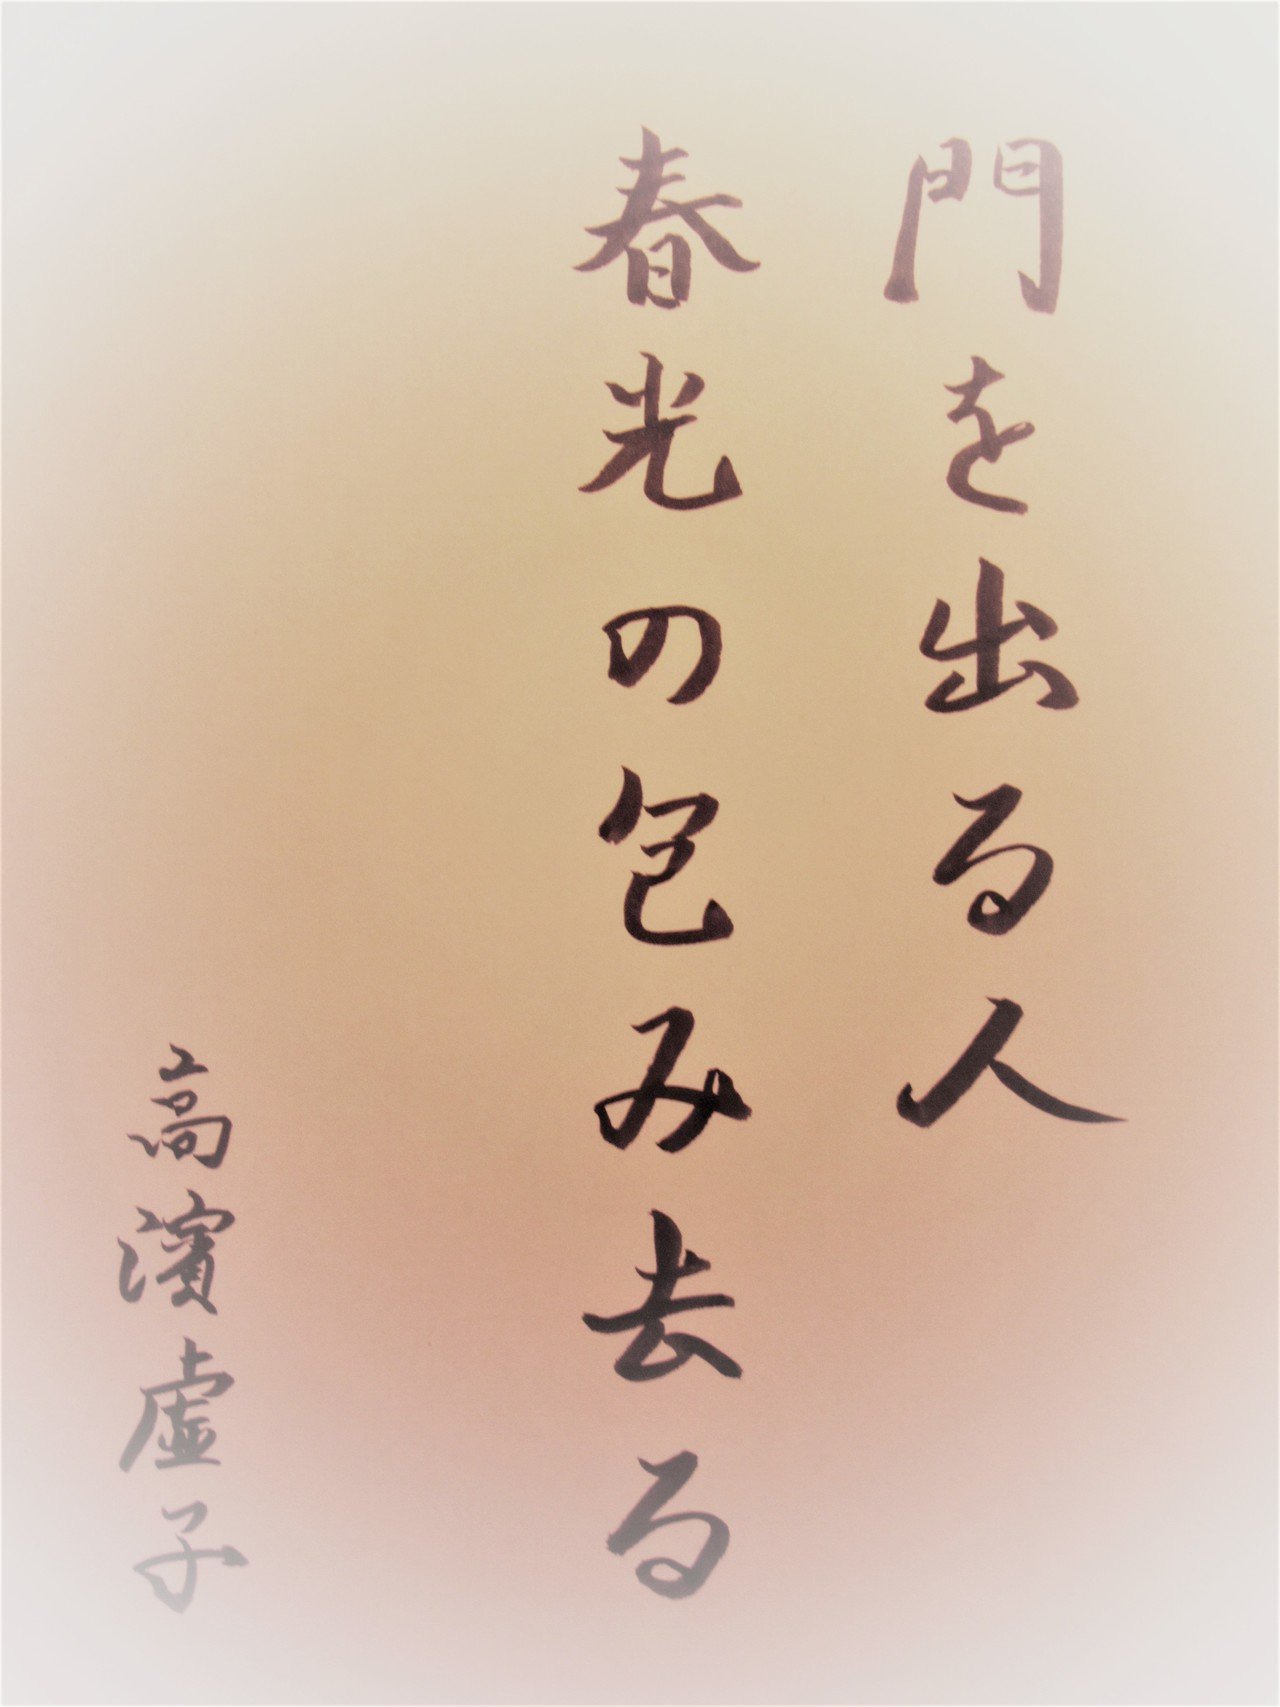 門を出る人
春光の包み去る
高濱虚子